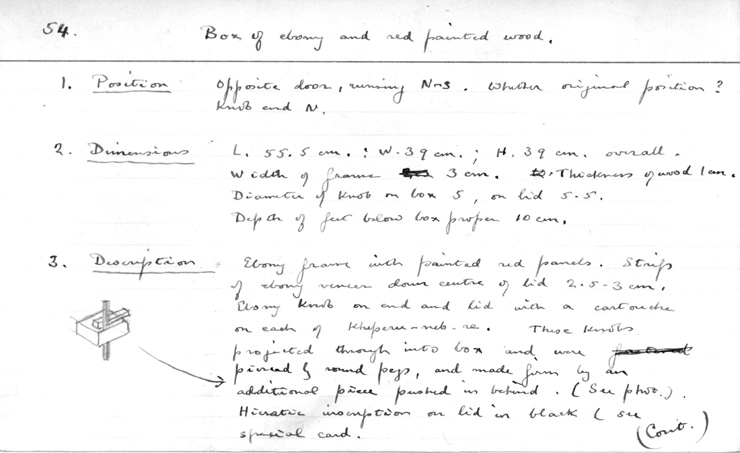 54. Box of ebony and red painted wood.
1. Position Opposite door, running N-S. Whether original position?
Knob end N.
2. Dimensions L. 55.5 cm. : W. 39 cm. ; H. 39 cm. overall.
Width of frame 3 cm. Thickness of wood 1 cm.
Diameter of Knob on box 5, on lid 5.5.
Depth of feet below box proper 10 cm.
3. Description Ebony frame with painted red panels. Strips
of ebony veneer down centre of lid 2.5-3 cm.
Ebony Knob on end and lid with a cartouche
on each of Kheperu-neb-re. These Knobs
projected through into box and were
pierced by round pegs, and made firm by an
additional piece pushed in behind. (See phot.).
Hieratic inscription on lid in black (see
special card.
(Cont.)